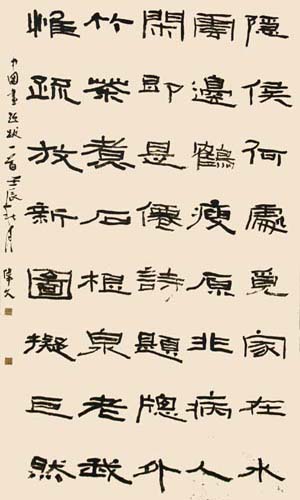 隱侯何處覓家在水
雲邊鶴瘦原非病人
閑即是僊詩題牕外
竹茶煮石根泉老我
惟疏放新圖擬巨然
中國畫題跋一首壬辰